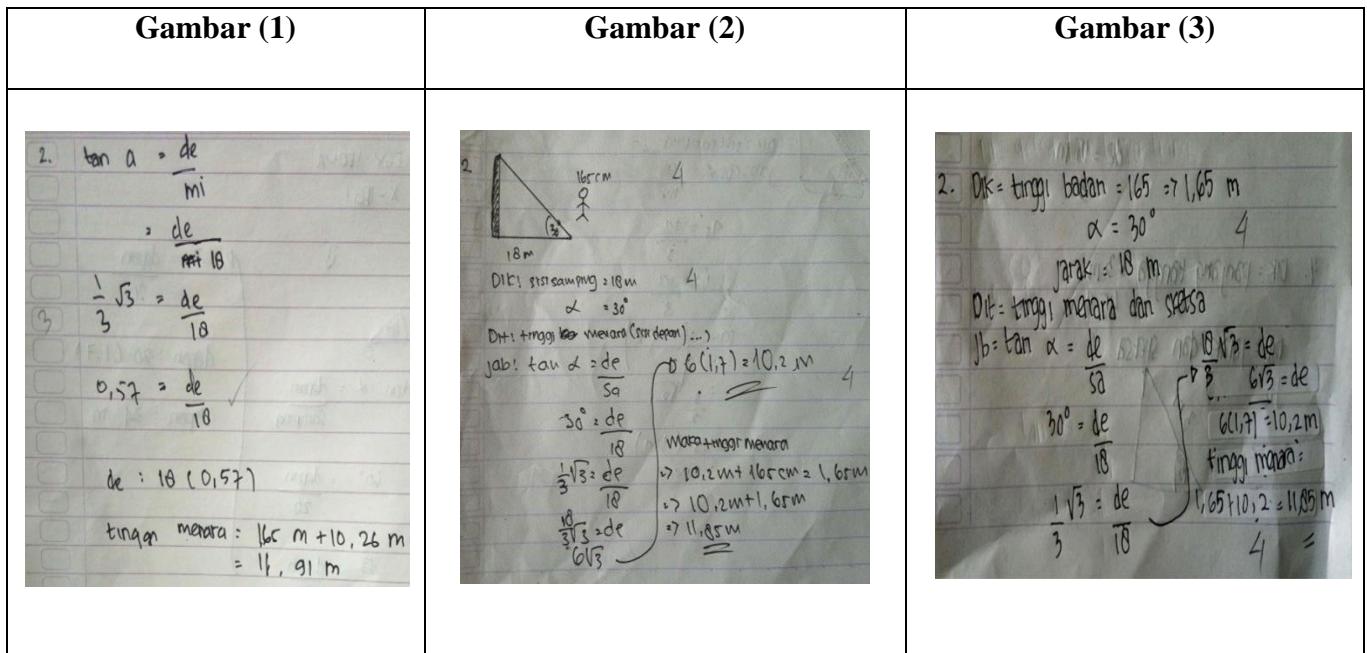 Gambar (1)
Gambar (2)
Gambar (3)
2. tan a = de
mi
= de
18
1/3 √3 = de/18
3
0,57 = de/18
de : 18 (0,57)
tinggi menara = 165 m + 10,26 m
= 11,91 m
2
165 cm
4
30°
18 m
DIK: sisi samping = 18 m
4
α = 30°
Dit: tinggi menara (sisi depan) ...?
jab: tan α = de/sa
30° = de/18
1/3 √3 = de/18
18/3 √3 = de
6√3
6(1,7) = 10,2 m
4
maka tinggi menara
=> 10,2 m + 165 cm = 1,65 m
=> 10,2 m + 1,65 m
=> 11,85 m
2. Dik = tinggi badan = 165 => 1,65 m
α = 30°
4
jarak = 18 m
Dit = tinggi menara dan sketsa
jb = tan α = de/sa
30° = de/18
1/3 √3 = de/18
18/3 √3 = de
6√3 = de
6(1,7) = 10,2 m
tinggi menara =
1,65 + 10,2 = 11,85 m
4